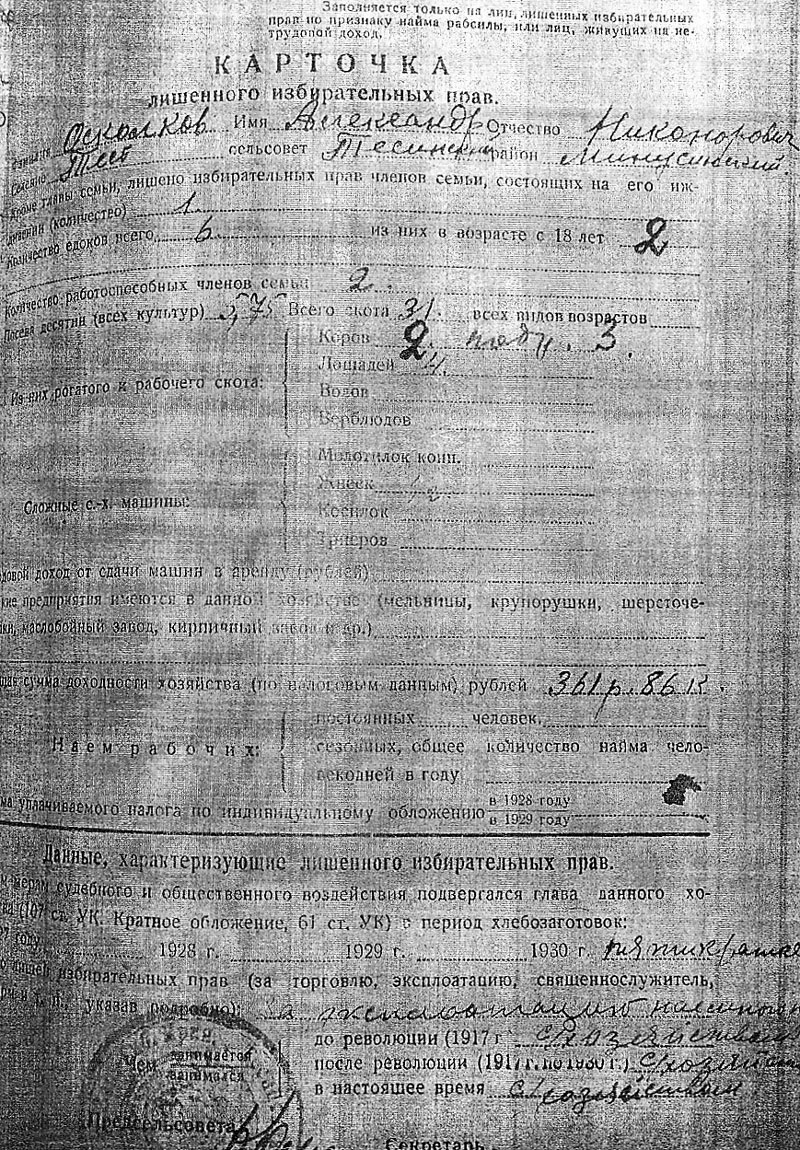 Заполняется только на лиц, лишенных избирательных
прав по признаку найма рабсилы, или лиц, живущих на не-
трудовой доход.
КАРТОЧКА
лишенного избирательных прав.
Осколков Имя Александр Отчество Никонорович
Тесь сельсовет Тесинский район Минусинский.
Кроме главы семьи, лишено избирательных прав членов семьи, состоящих на его иж-
дивении (количество) 1.
Количество едоков всего 6 из них в возрасте с 18 лет 2
Количество работоспособных членов семьи 2.
Посева десятин (всех культур) 3,75 Всего скота 31. всех видов возрастов
Коров 2 подт. 3.
Лошадей 4.
Из них рогатого и рабочего скота:
Волов
Верблюдов
Молотилок конн.
Жнеек
Сложные с.-х. машины:
Косилок
Триеров
доход от сдачи машин в аренду (рублей)
предприятия имеются в данном хозяйстве (мельницы, крупорушки, шерсточе-
маслобойный завод, кирпичный завод и др.)
сумма доходности хозяйства (по налоговым данным) рублей 361 р. 86 к.
постоянных человек.
Наем рабочих: сезонных, общее количество найма чело-
векодней в году
уплачиваемого налога по индивидуальному обложению в 1928 году
в 1929 году
Данные, характеризующие лишенного избирательных прав.
мерам судебного и общественного воздействия подвергался глава данного хо-
(107 ст. УК. Кратное обложение, 61 ст. УК) в период хлебозаготовок:
году 1928 г. 1929 г. 1930 г. пятикратке
избирательных прав (за торговлю, эксплоатацию, священнослужитель,
и т. п. указав подробно): за эксплоатацию
до революции (1917 г. с/хозяйством
Чем занимается
занимался
после революции (1917 г. по 1930 г.) с/хозяйств
в настоящее время с/хозяйством
Предсельсовета
Секретарь